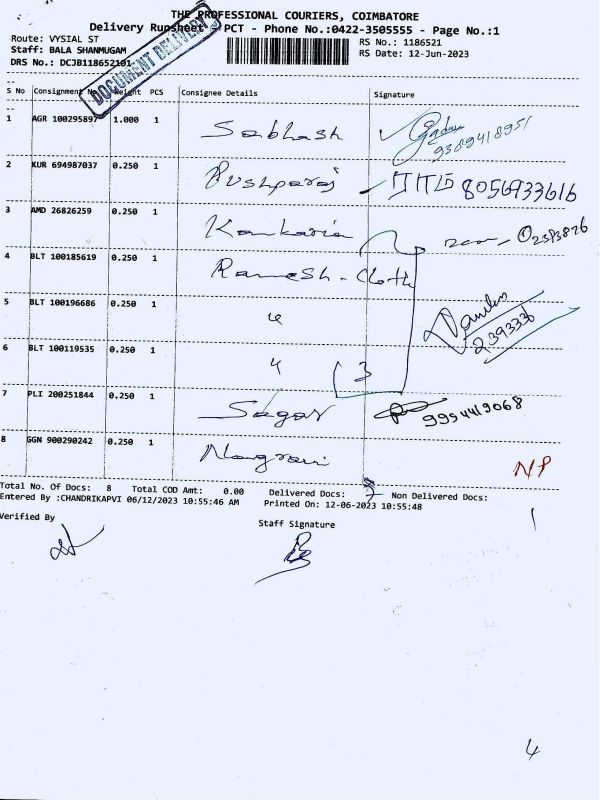 THE PROFESSIONAL COURIERS, COIMBATORE
Delivery Runsheet - PCT - Phone No.:0422-3505555 - Page No.:1
Route: VYSIAL ST
RS No.: 1186521
Staff: BALA SHANMUGAM
RS Date: 12-Jun-2023
DRS No.: DCJB118652101
DOCUMENT DELIVERY
S No Consignment No Weight PCS Consignee Details Signature
1 AGR 100295897 1.000 1 Sabhash
9389418951
2 KUR 694987037 0.250 1 Pushparaj 8056933616
3 AMD 26826259 0.250 1 Kankaria
4 BLT 100185619 0.250 1 Ramesh - Cloth
5 BLT 100196686 0.250 1 "
239333
6 BLT 100119535 0.250 1 " 3
7 PLI 200251844 0.250 1 Sagar 9994419068
8 GGN 900290242 0.250 1 Nagravi NP
Total No. Of Docs: 8 Total COD Amt: 0.00 Delivered Docs: 7 Non Delivered Docs: 1
Entered By :CHANDRIKAPVI 06/12/2023 10:55:46 AM Printed On: 12-06-2023 10:55:48
Verified By Staff Signature
4